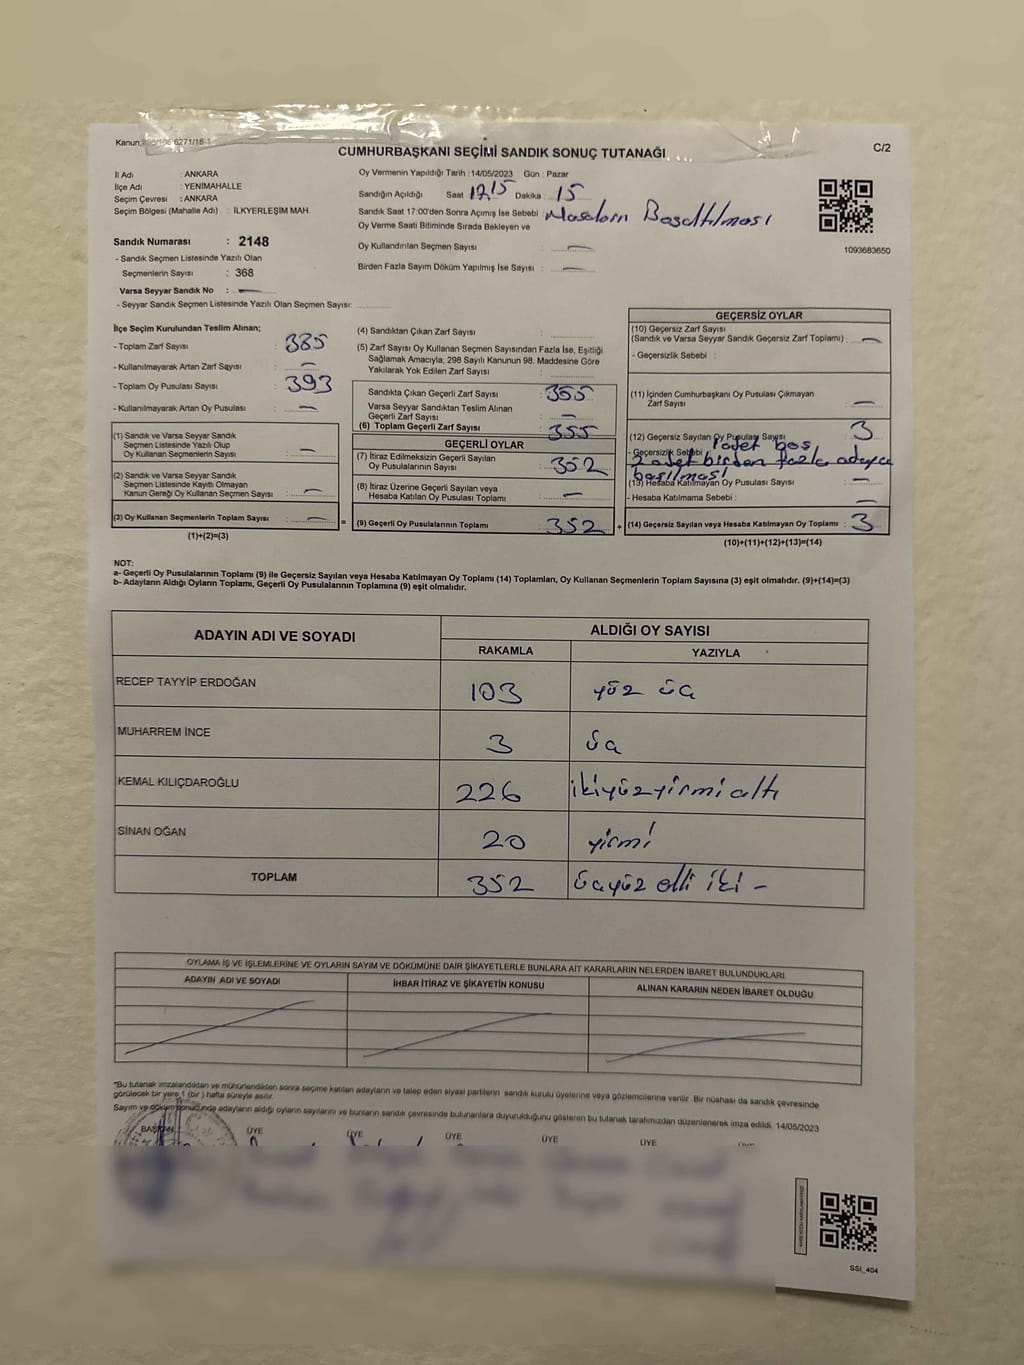 CUMHURBAŞKANI SEÇİMİ SANDIK SONUÇ TUTANAĞI
C/2
İl Adı : ANKARA
İlçe Adı : YENİMAHALLE
Seçim Çevresi : ANKARA
Seçim Bölgesi (Mahalle Adı) : İLKYERLEŞİM MAH.
Oy Vermenin Yapıldığı Tarih : 14/05/2023 Gün : Pazar
Sandığın Açıldığı Saat Dakika : 15
Sandık Saat 17:00'den Sonra Açımış İse Sebebi : Masaların Boşaltılması
Oy Verme Saati Bitiminde Sırada Bekleyen ve
Oy Kullandırılan Seçmen Sayısı : —
Birden Fazla Sayım Döküm Yapılmış İse Sayısı : —
1093683650
Sandık Numarası : 2148
- Sandık Seçmen Listesinde Yazılı Olan
Seçmenlerin Sayısı : 368
Varsa Seyyar Sandık No : —
- Seyyar Sandık Seçmen Listesinde Yazılı Olan Seçmen Sayısı:
İlçe Seçim Kurulundan Teslim Alınan;
- Toplam Zarf Sayısı : 385
- Kullanılmayarak Artan Zarf Sayısı : —
- Toplam Oy Pusulası Sayısı : 393
- Kullanılmayarak Artan Oy Pusulası : —
(1) Sandık ve Varsa Seyyar Sandık
Seçmen Listesinde Yazılı Olup
Oy Kullanan Seçmenlerin Sayısı : —
(2) Sandık ve Varsa Seyyar Sandık
Seçmen Listesinde Kayıtlı Olmayan
Kanun Gereği Oy Kullanan Seçmen Sayısı : —
(3) Oy Kullanan Seçmenlerin Toplam Sayısı : —
(1)+(2)=(3)
(4) Sandıktan Çıkan Zarf Sayısı :
(5) Zarf Sayısı Oy Kullanan Seçmen Sayısından Fazla İse, Eşitliği
Sağlamak Amacıyla, 298 Sayılı Kanunun 98. Maddesine Göre
Yakılarak Yok Edilen Zarf Sayısı :
Sandıkta Çıkan Geçerli Zarf Sayısı : 355
Varsa Seyyar Sandıktan Teslim Alınan
Geçerli Zarf Sayısı : —
(6) Toplam Geçerli Zarf Sayısı : 355
GEÇERLİ OYLAR
(7) İtiraz Edilmeksizin Geçerli Sayılan
Oy Pusulalarının Sayısı : 352
(8) İtiraz Üzerine Geçerli Sayılan veya
Hesaba Katılan Oy Pusulası Toplamı : —
= (9) Geçerli Oy Pusulalarının Toplamı : 352 +
GEÇERSİZ OYLAR
(10) Geçersiz Zarf Sayısı
(Sandık ve Varsa Seyyar Sandık Geçersiz Zarf Toplamı) : —
- Geçersizlik Sebebi :
(11) İçinden Cumhurbaşkanı Oy Pusulası Çıkmayan
Zarf Sayısı : —
(12) Geçersiz Sayılan Oy Pusulası Sayısı : 3
- Geçersizlik Sebebi : 1 adet boş
2 adet birden fazla adaya
basılması
(13) Hesaba Katılmayan Oy Pusulası Sayısı : —
- Hesaba Katılmama Sebebi : —
(14) Geçersiz Sayılan veya Hesaba Katılmayan Oy Toplamı : 3
(10)+(11)+(12)+(13)=(14)
NOT:
a- Geçerli Oy Pusulalarının Toplamı (9) ile Geçersiz Sayılan veya Hesaba Katılmayan Oy Toplamı (14) Toplamları, Oy Kullanan Seçmenlerin Toplam Sayısına (3) eşit olmalıdır. (9)+(14)=(3)
b- Adayların Aldığı Oyların Toplamı, Geçerli Oy Pusulalarının Toplamına (9) eşit olmalıdır.
ADAYIN ADI VE SOYADI
ALDIĞI OY SAYISI
RAKAMLA YAZIYLA
RECEP TAYYİP ERDOĞAN 103 yüz üç
MUHARREM İNCE 3 üç
KEMAL KILIÇDAROĞLU 226 ikiyüzyirmi altı
SİNAN OĞAN 20 yirmi
TOPLAM 352 üçyüz elli iki -
OYLAMA İŞ VE İŞLEMLERİNE VE OYLARIN SAYIM VE DÖKÜMÜNE DAİR ŞİKAYETLERLE BUNLARA AİT KARARLARIN NELERDEN İBARET BULUNDUKLARI
ADAYIN ADI VE SOYADI İHBAR İTİRAZ VE ŞİKAYETİN KONUSU ALINAN KARARIN NEDEN İBARET OLDUĞU
*Bu tutanak imzalandıktan ve mühürlendikten sonra seçime katılan adayların ve talep eden siyasi partilerin sandık kurulu üyelerine veya gözlemcilerine verilir. Bir nüshası da sandık çevresinde
görülecek bir yere 1 (bir) hafta süreyle asılır.
Sayım ve döküm sonucunda adayların aldığı oyların sayılarını ve bunların sandık çevresinde bulunanlara duyurulduğunu gösteren bu tutanak tarafımızdan düzenlenerek imza edildi. 14/05/2023
BAŞKAN ÜYE ÜYE ÜYE ÜYE ÜYE
SSI_404